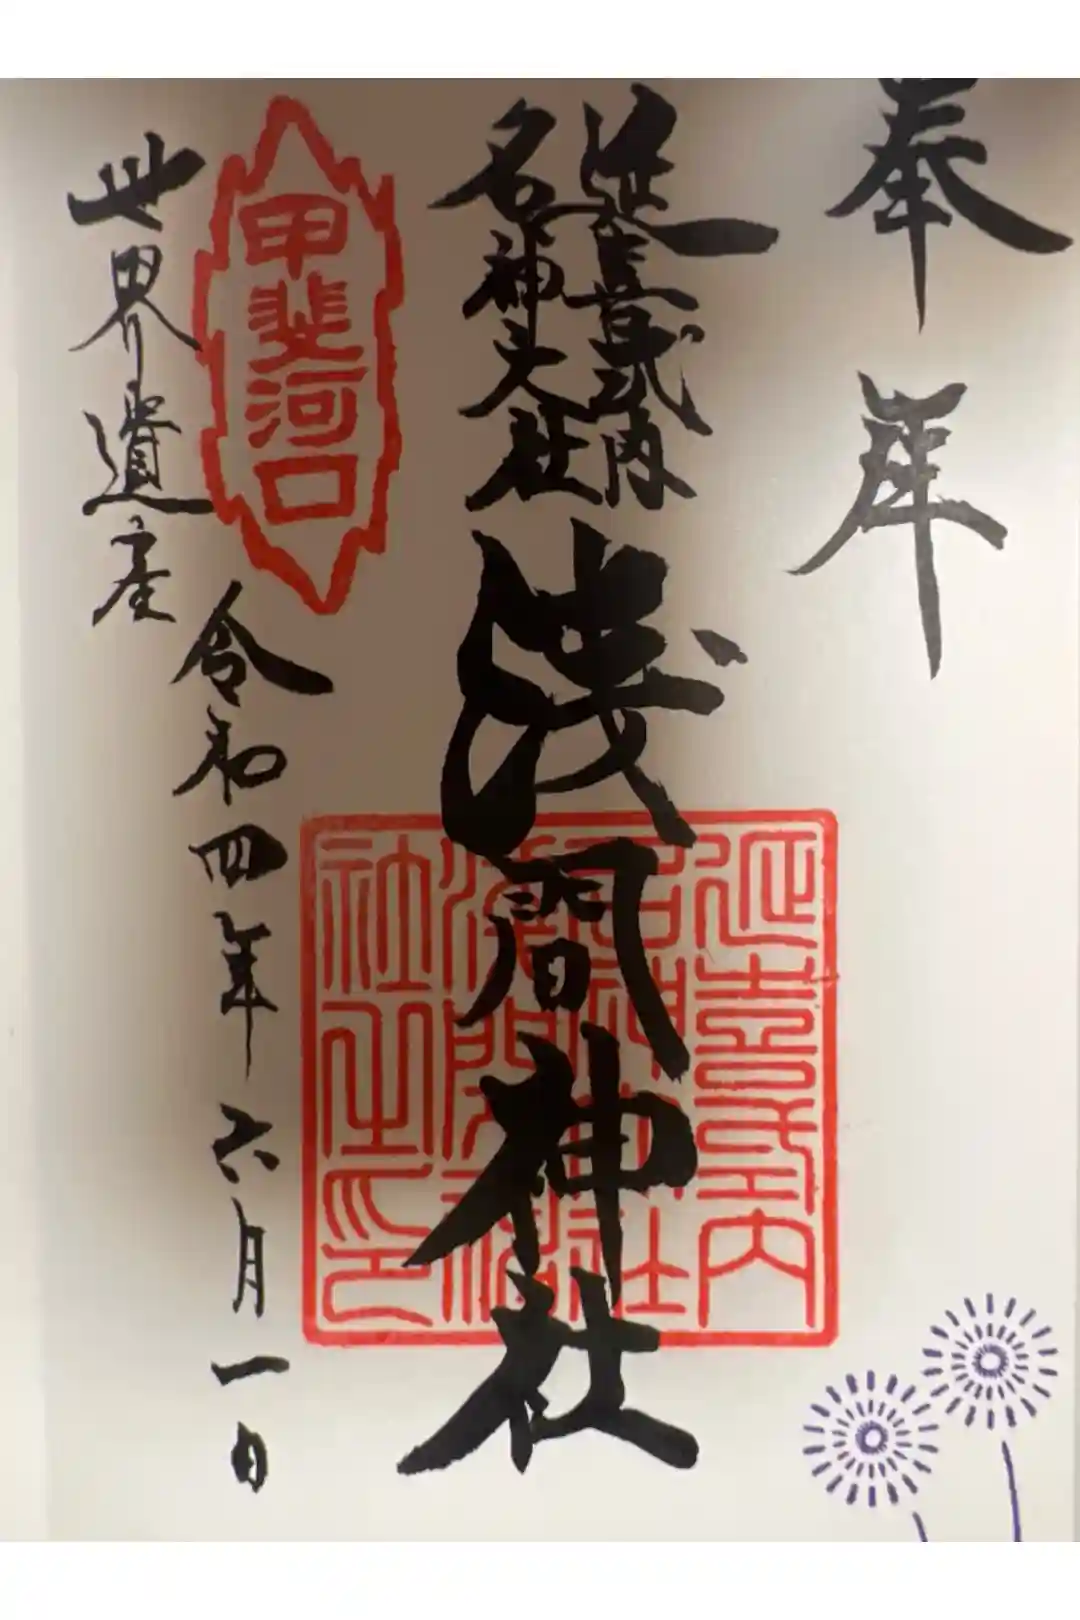 奉拝
延喜式内
名神大社
浅間神社
延喜式内
名神大社
浅間神社
社之印
甲斐河口
令和四年六月一日
世界遺産